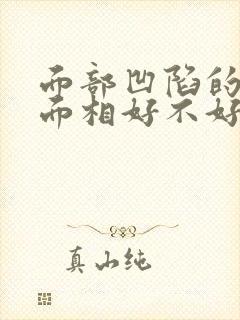 而部凹陷的
而相好不好
真山纯